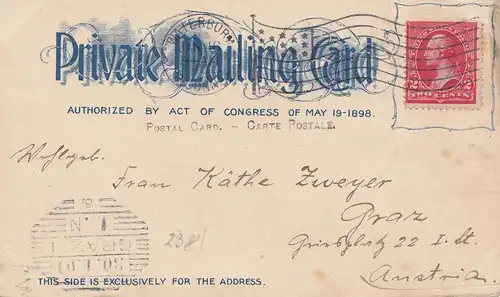 WATERBURY
Private Mailing Card.
2 TWO CENTS 2
AUTHORIZED BY ACT OF CONGRESS OF MAY 19-1898.
POSTAL CARD. - CARTE POSTALE.
Wohlgeb.
Frau Käthe Zweyer
Graz
Griesplatz 22 I. St.
Austria.
2381
GRAZ 1
THIS SIDE IS EXCLUSIVELY FOR THE ADDRESS.